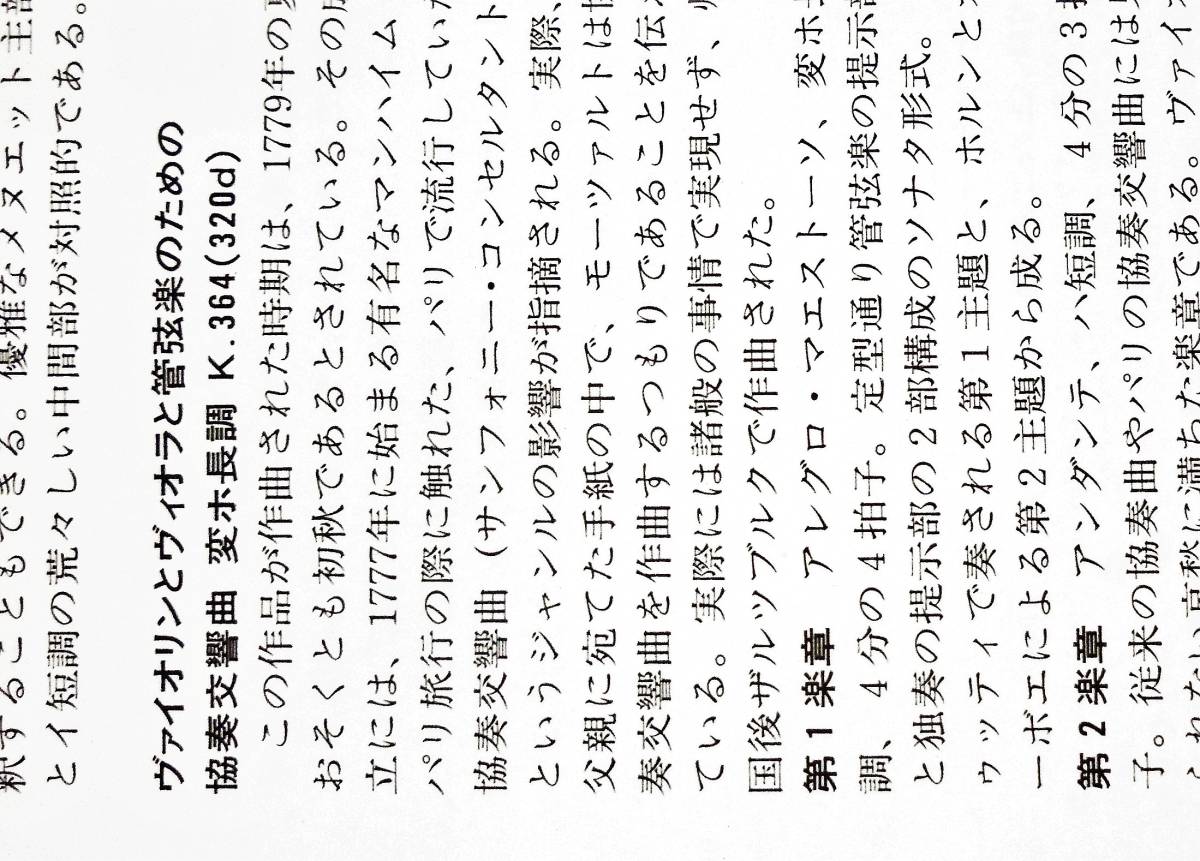 釈することもできる。優雅なメヌエット主部
とイ短調の荒々しい中間部が対照的である。
ヴァイオリンとヴィオラと管弦楽のための
協奏交響曲 変ホ長調 K.364(320d)
この作品が作曲された時期は、1779年の
おそくとも初秋であるとされている。その
立には、1777年に始まる有名なマンハイム
パリ旅行の際に触れた、パリで流行してい
協奏交響曲（サンフォニー・コンセルタント
というジャンルの影響が指摘される。実際、
父親に宛てた手紙の中で、モーツァルトは
奏交響曲を作曲するつもりであることを伝
ている。実際には諸般の事情で実現せず、
国後ザルツブルクで作曲された。
第1楽章 アレグロ・マエストーソ、変ホ
調、4分の4拍子。定型通り管弦楽の提示部
と独奏の提示部の2部構成のソナタ形式。
ゥッティで奏される第1主題と、ホルンと
ーボエによる第2主題から成る。
第2楽章 アンダンテ、ハ短調、4分の3
子。従来の協奏曲やパリの協奏交響曲には
哀愁に満ちた楽章である。ヴァイ